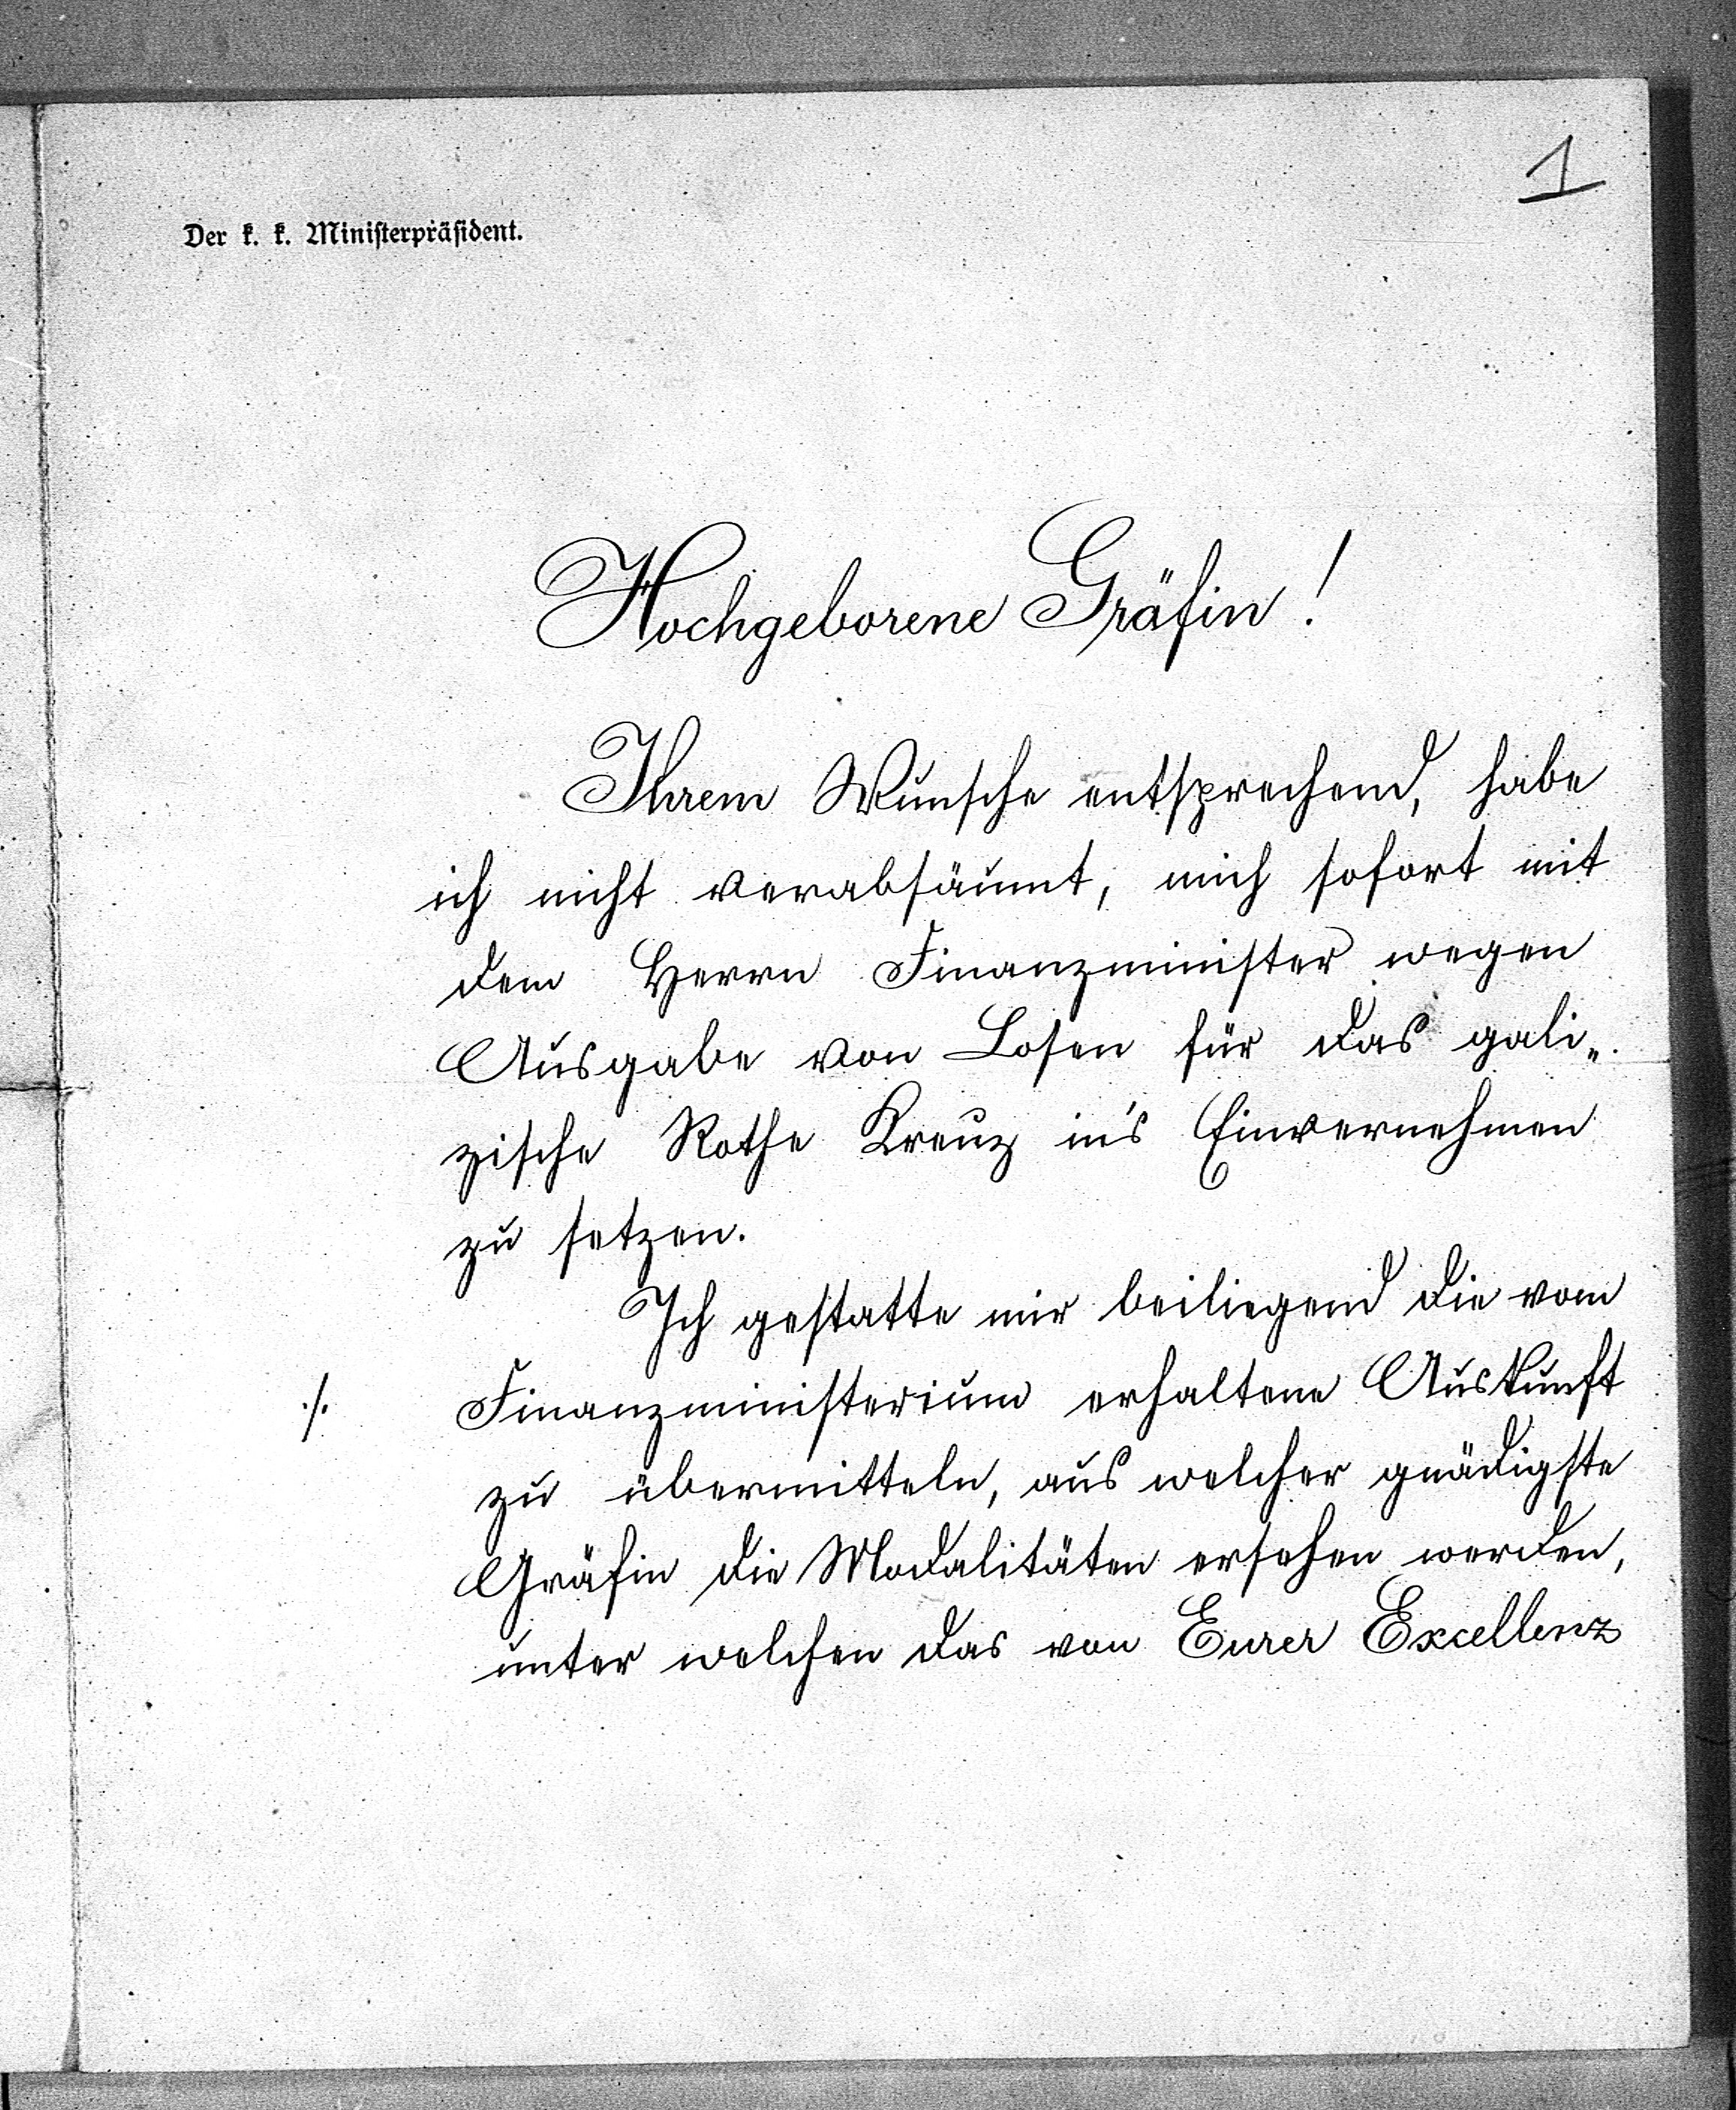 1
Der k. k. Ministerpräsident.
Hochgeborene Gräfin!
Ihrem Wunsche entsprechend, habe
ich nicht verabsäumt, mich sofort mit
dem Herrn Finanzminister wegen
Ausgabe von Losen für das gali„
zische Rothe Kreuz in's Einvernehmen
zu setzen.
Ich gestatte mir beiliegend die vom
./. Finanzministerium erhaltene Auskunft
zu übermitteln, aus welcher gnädigste
Gräfin die Modalitäten ersehen werden,
unter welchen das von Eurer Excellenz